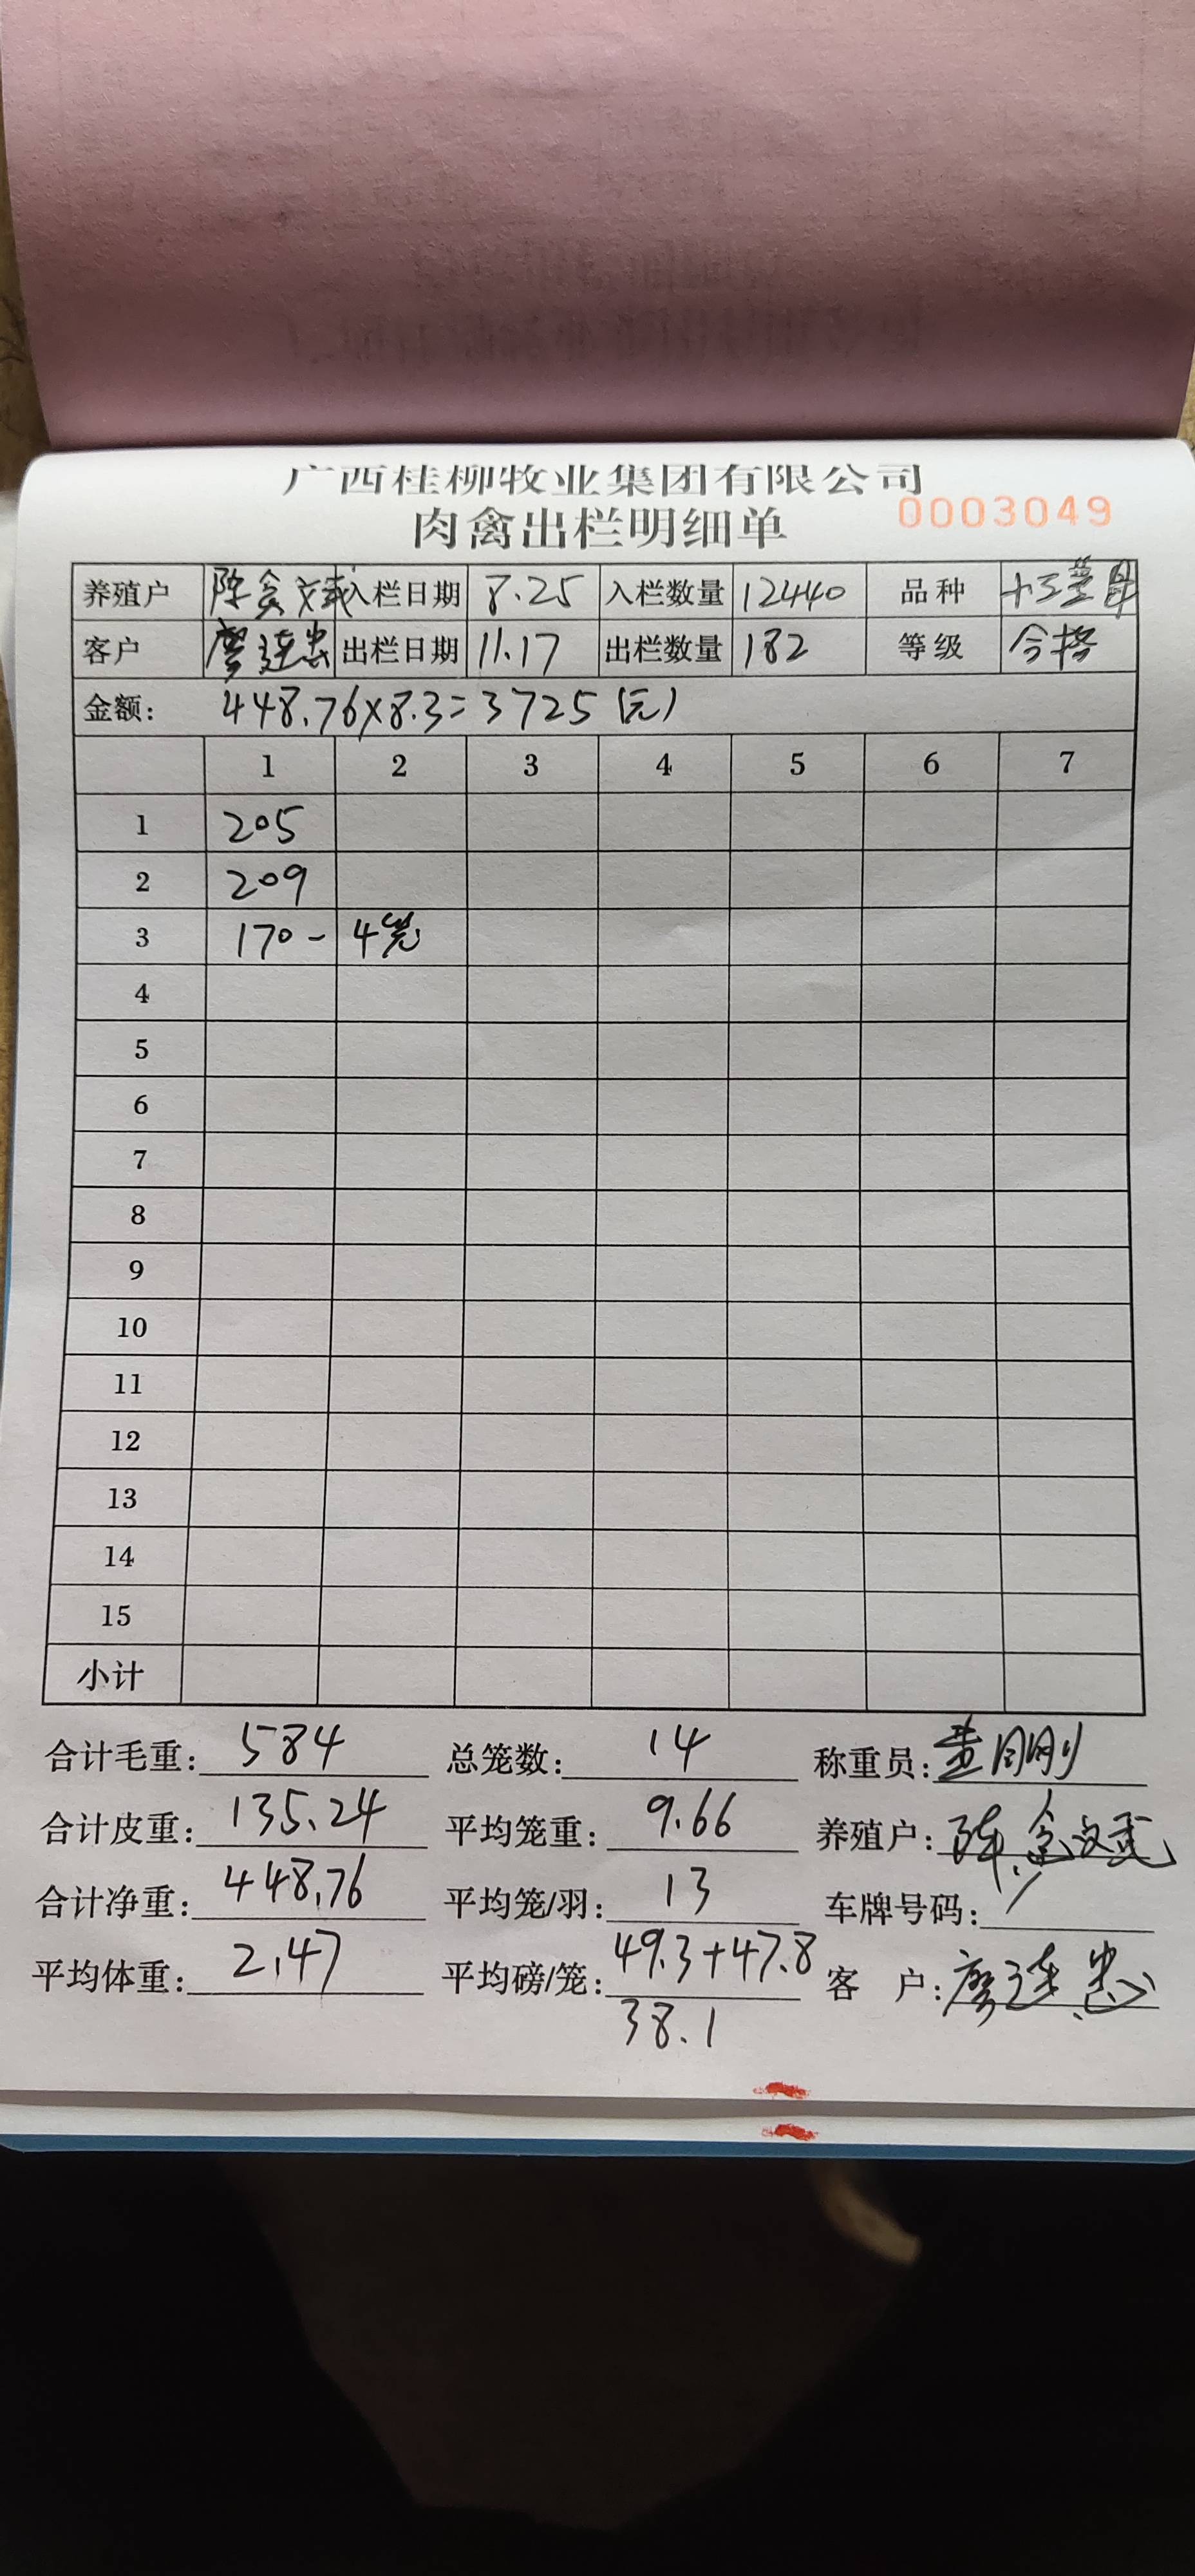 广西桂柳牧业集团有限公司
肉禽出栏明细单 0003049
养殖户 陈金文武 入栏日期 8.25 入栏数量 12440 品种
客户 廖连忠 出栏日期 11.17 出栏数量 182 等级 合格
金额: 448.76×8.3=3725(元)
1 2 3 4 5 6 7
1 205
2 209
3 170- 4笼
4
5
6
7
8
9
10
11
12
13
14
15
小计
合计毛重: 584 总笼数: 14 称重员:
合计皮重: 135.24 平均笼重: 9.66 养殖户: 陈金文武
合计净重: 448.76 平均笼/羽: 13 车牌号码: /
平均体重: 2.47 平均磅/笼: 49.3+47.8 客 户: 廖连忠
38.1